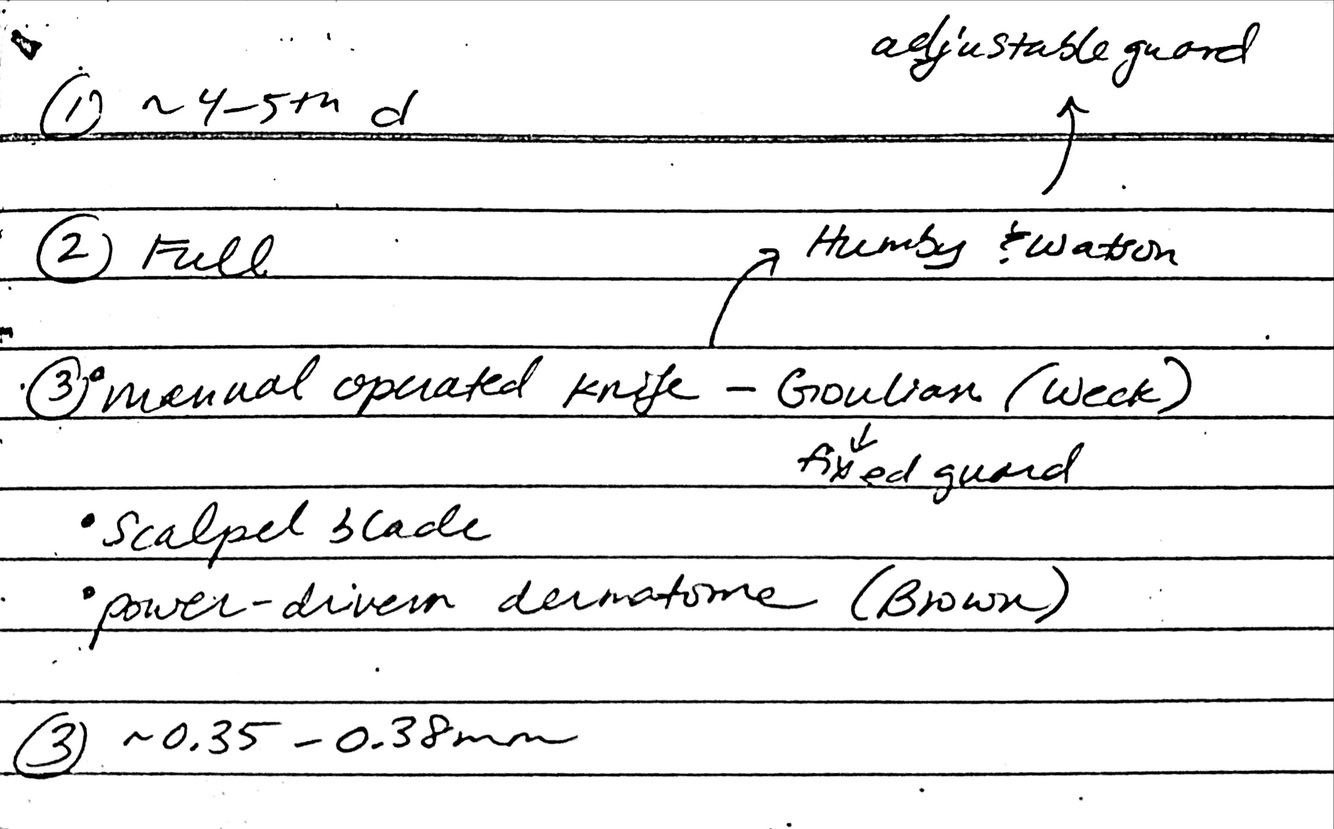 adjustable guard
① ~ 4-5th d
② Full
Humby & Watson
③ • manual operated knife - Goulian (Weck)
fixed guard
• Scalpel blade
• power-driven dermatome (Brown)
③ ~0.35 - 0.38mm